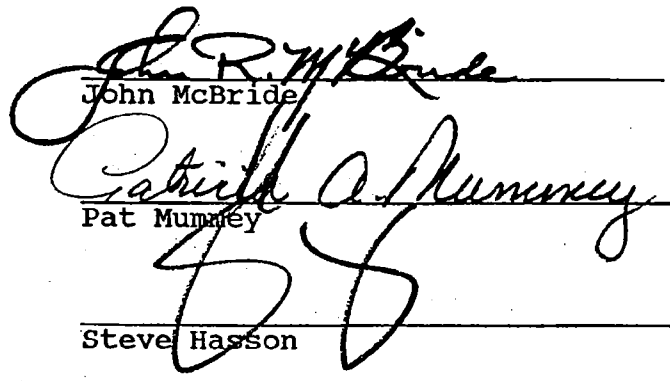 John R. McBride
John McBride
Patricia A. Mummey
Pat Mummey
Steve Hasson